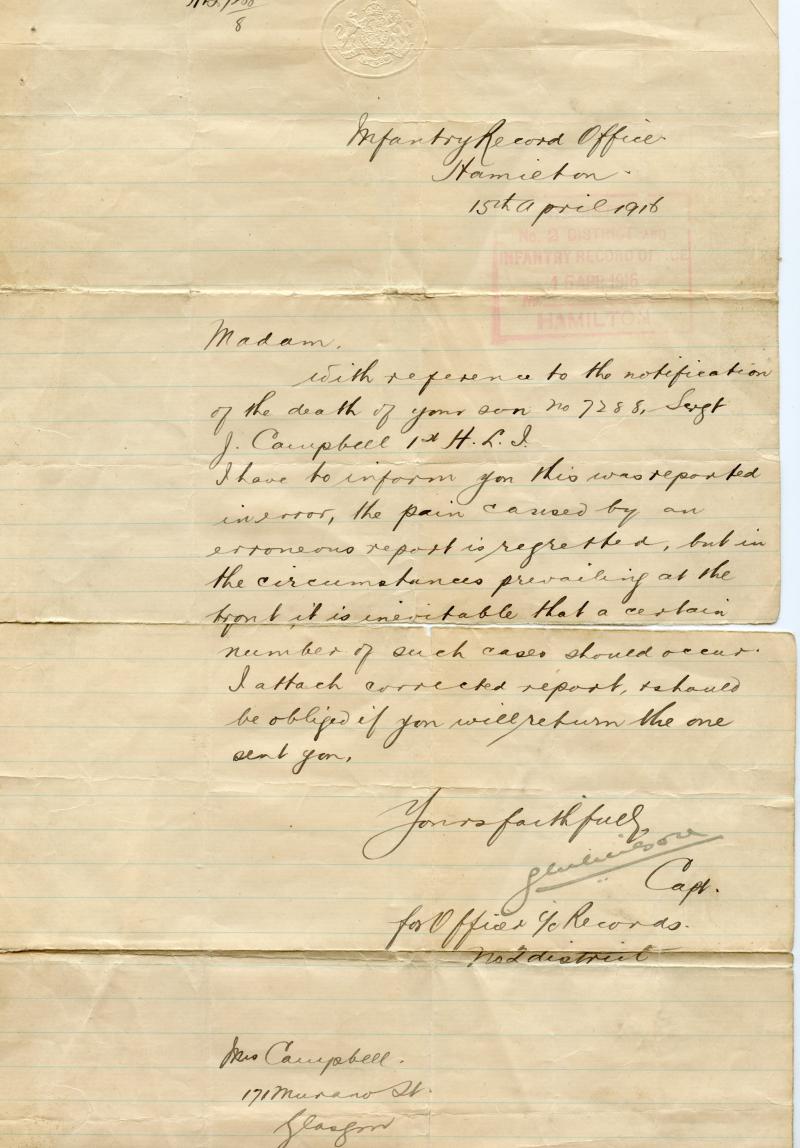 8
Infantry Record Office.
Hamilton.
15th April 1916
No. 2 DISTRICT AND
INFANTRY RECORD OFFICE
APR 1916
HAMILTON
Madam,
With reference to the notification
of the death of your son No 7288, Sergt
J. Campbell 1st H.L.I.
I have to inform you this was reported
in error, the pain caused by an
erroneous report is regretted, but in
the circumstances prevailing at the
front it is inevitable that a certain
number of such cases should occur.
I attach corrected report, & should
be obliged if you will return the one
sent you.
Yours faithfully
Capt.
for Officer i/c Records.
No 2 district
Mrs Campbell.
171 Murano St.
Glasgow